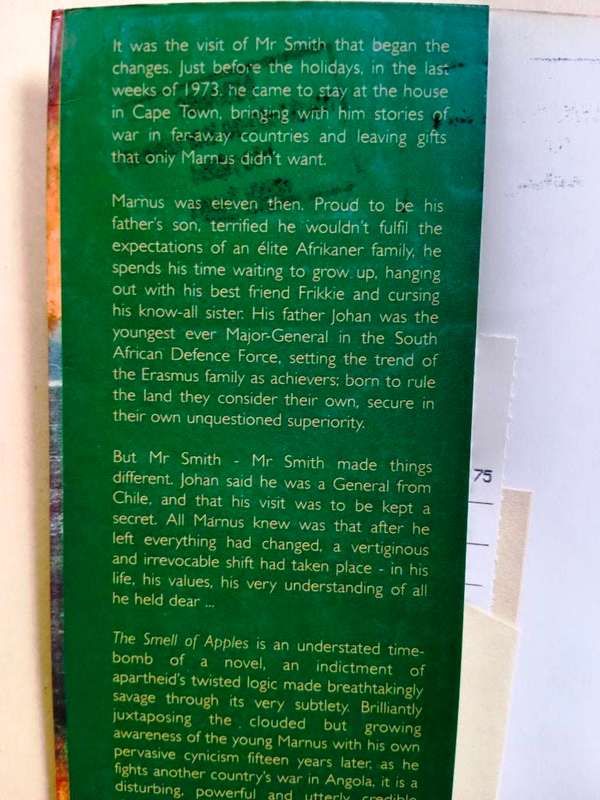 It was the visit of Mr Smith that began the
changes. Just before the holidays, in the last
weeks of 1973, he came to stay at the house
in Cape Town, bringing with him stories of
war in far-away countries and leaving gifts
that only Marnus didn't want.
Marnus was eleven then. Proud to be his
father's son, terrified he wouldn't fulfil the
expectations of an élite Afrikaner family, he
spends his time waiting to grow up, hanging
out with his best friend Frikkie and cursing
his know-all sister. His father Johan was the
youngest ever Major-General in the South
African Defence Force, setting the trend of
the Erasmus family as achievers; born to rule
the land they consider their own, secure in
their own unquestioned superiority.
But Mr Smith - Mr Smith made things
different. Johan said he was a General from
Chile, and that his visit was to be kept a
secret. All Marnus knew was that after he
left everything had changed, a vertiginous
and irrevocable shift had taken place - in his
life, his values, his very understanding of all
he held dear ...
The Smell of Apples is an understated time-
bomb of a novel, an indictment of
apartheid's twisted logic made breathtakingly
savage through its very subtlety. Brilliantly
juxtaposing the clouded but growing
awareness of the young Marnus with his own
pervasive cynicism fifteen years later, as he
fights another country's war in Angola, it is a
disturbing, powerful and utterly credible
75